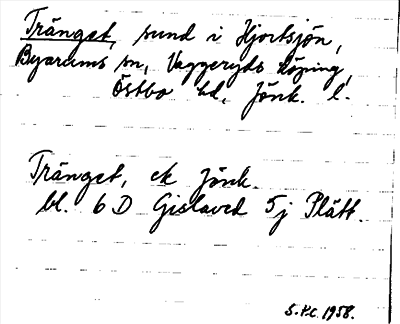 Trånget, sund i Hjortsjön,
Byarums sn, Vaggeryds köping,
Östbo hd, Jönk. l.
Trånget, ek Jönk.
bl. 6 D Gislaved 5j Plätt.
S.Pc. 1958.